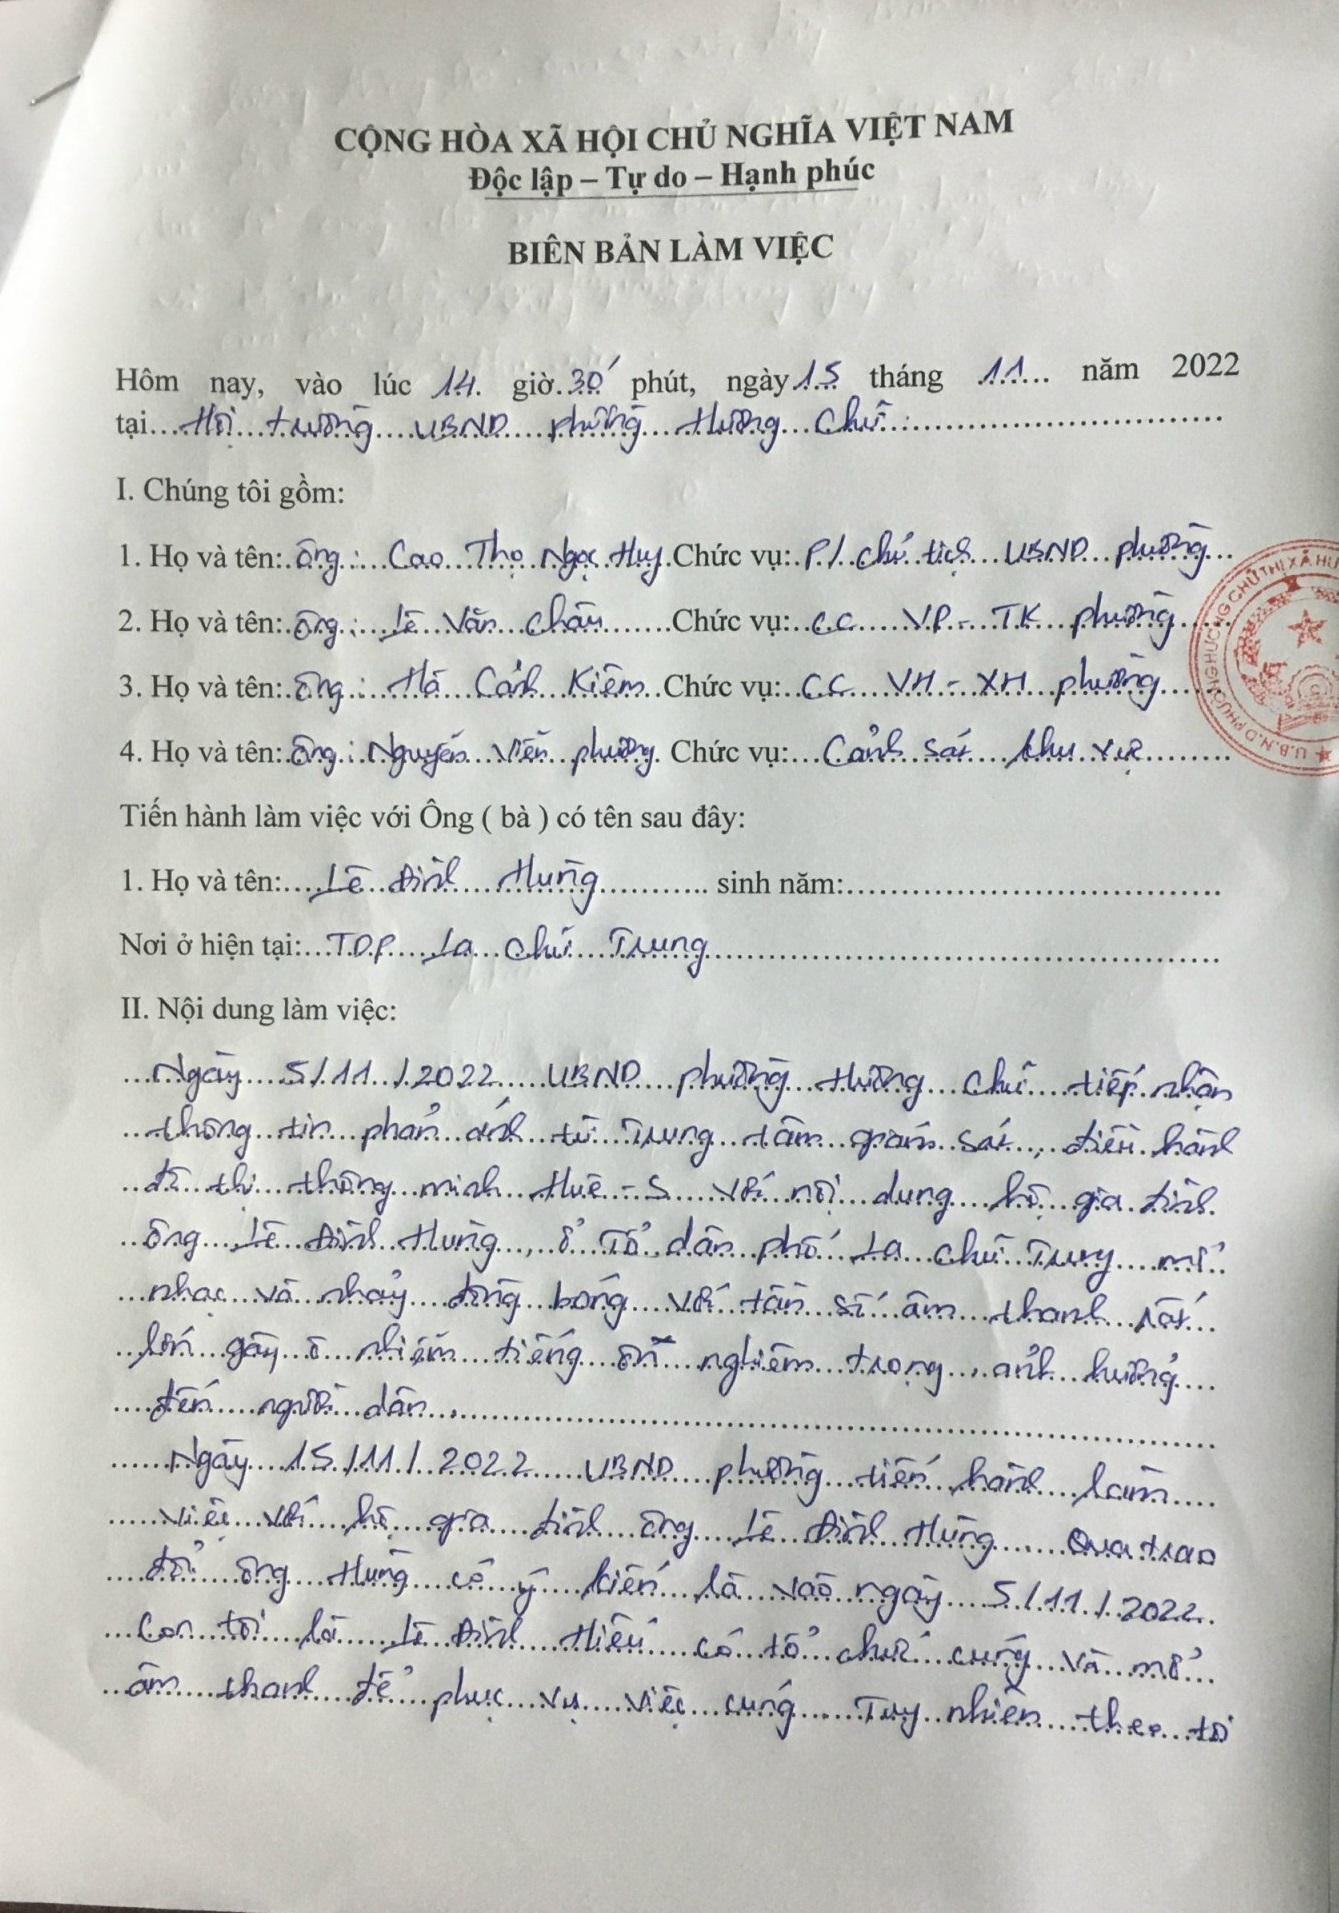 CỘNG HÒA XÃ HỘI CHỦ NGHĨA VIỆT NAM
Độc lập – Tự do – Hạnh phúc
BIÊN BẢN LÀM VIỆC
Hôm nay, vào lúc 14 giờ 30' phút, ngày 15 tháng 11 năm 2022
tại Hội trường UBND phường Hương Chữ
I. Chúng tôi gồm:
1. Họ và tên: Ông: Cao Thọ Ngọc Huy Chức vụ: P/ Chủ tịch UBND phường
2. Họ và tên: Ông: Lê Văn Châu Chức vụ: CC VP - TK phường
3. Họ và tên: Ông: Hà Cảnh Kiêm Chức vụ: CC VH - XH phường
4. Họ và tên: Ông: Nguyễn Viễn Phương Chức vụ: Cảnh sát khu vực
U.B.N.D PHƯỜNG HƯƠNG CHỮ THỊ XÃ HƯ
Tiến hành làm việc với Ông ( bà ) có tên sau đây:
1. Họ và tên: Lê Đình Hùng sinh năm:
Nơi ở hiện tại: TDP La Chữ Trung
II. Nội dung làm việc:
Ngày 5/11/2022 UBND phường Hương Chữ tiếp nhận
thông tin phản ánh từ Trung tâm giám sát, điều hành
đô thị thông minh Huế-S với nội dung hộ gia đình
ông Lê Đình Hùng, ở Tổ dân phố La Chữ Trung mở
nhạc và nhảy đồng bóng với tần số âm thanh rất
lớn gây ô nhiễm tiếng ồn nghiêm trọng, ảnh hưởng
đến người dân.
Ngày 15/11/2022 UBND phường tiến hành làm
việc với hộ gia đình ông Lê Đình Hùng. Qua trao
đổi ông Hùng có ý kiến là vào ngày 5/11/2022
Con tôi là Lê Đình Hiếu có tổ chức cúng và mở
âm thanh để phục vụ việc cúng. Tuy nhiên theo tôi